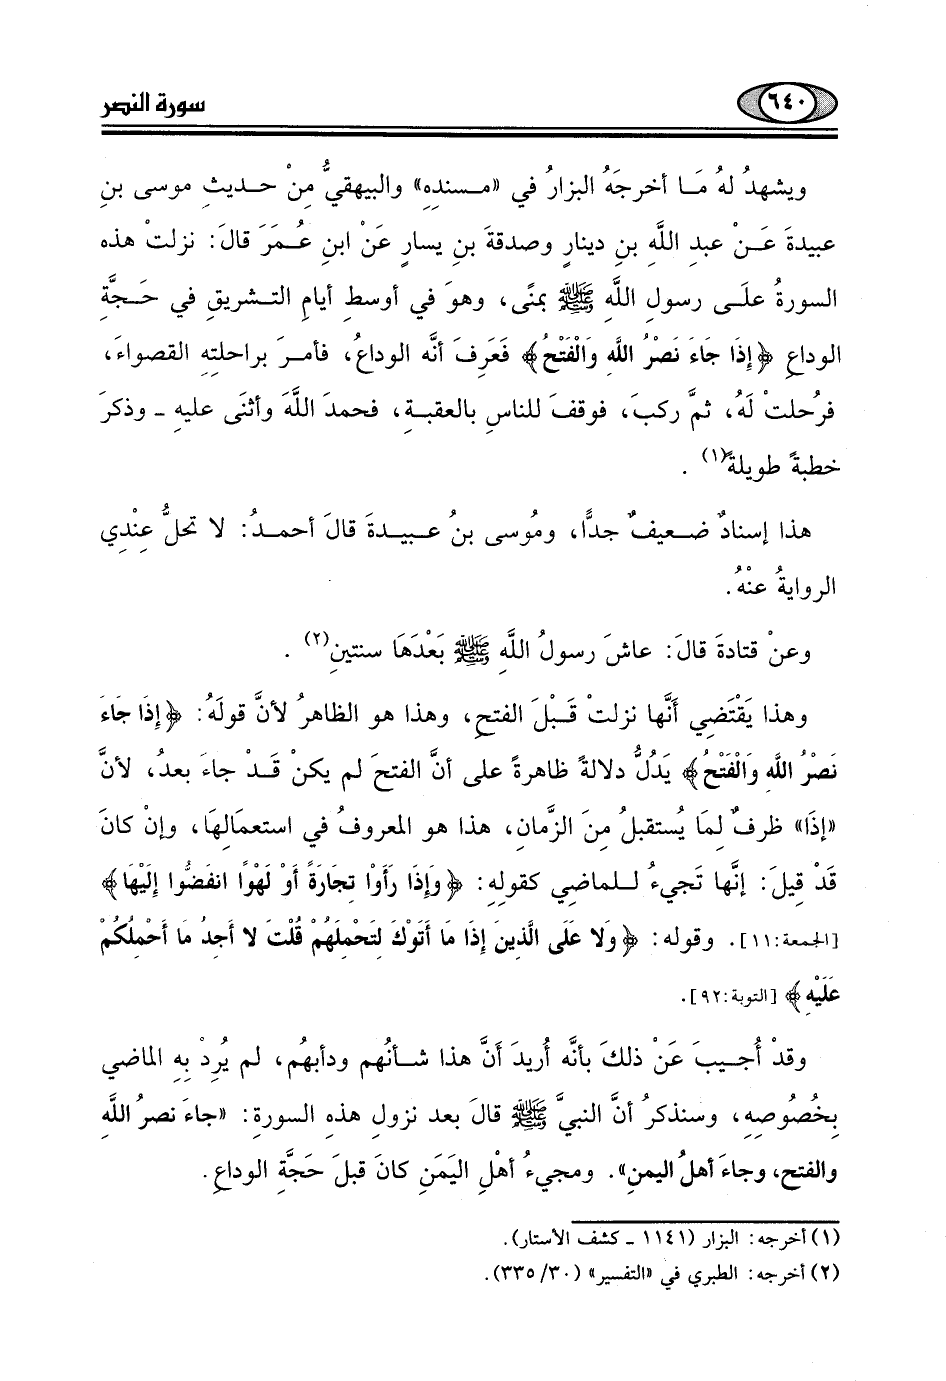 سورة النصر
٦٤٠
ويشهدُ لهُ مَا أخرجَهُ البزارُ في «مسندِهِ» والبيهقيُّ مِنْ حديثِ موسى بنِ
عبيدةَ عَنْ عبدِ اللَّهِ بنِ دينارٍ وصدقةَ بنِ يسارٍ عَنْ ابنِ عُمَرَ قالَ: نزلتْ هذه
السورةُ علَى رسولِ اللَّهِ ﷺ بمنًى، وهوَ في أوسطِ أيامِ التشريقِ في حَجةِ
الوداعِ ﴿إِذَا جَاءَ نَصْرُ اللَّهِ وَالْفَتْحُ﴾ فَعَرفَ أنَّه الوداعُ، فأمرَ براحلتِهِ القصواءَ،
فرُحلتْ لَهُ، ثمَّ ركبَ، فوقفَ للناسِ بالعقبةِ، فحمدَ اللَّهَ وأثنَى عليهِ ـ وذكرَ
خطبةً طويلةً(١) .
هذا إسنادٌ ضعيفٌ جدًّا، ومُوسى بنُ عبيدةَ قالَ أحمدُ: لا تحلُّ عِنْدِي
الروايةُ عنْهُ.
وعنْ قتادةَ قالَ: عاشَ رسولُ اللَّهِ ﷺ بَعْدَهَا سنتينِ(٢) .
وهذا يَقْتَضِي أَنَّها نزلتْ قَبْلَ الفتحِ، وهذا هو الظاهرُ لأنَّ قولَهُ: ﴿إِذَا جَاءَ
نَصْرُ اللَّهِ وَالْفَتْحُ﴾ يَدُلُّ دلالةً ظاهرةً على أنَّ الفتحَ لم يكنْ قَدْ جاءَ بعدُ، لأنَّ
«إذَا» ظرفٌ لمَا يُستقبلُ مِنَ الزَّمانِ، هذا هو المعروفُ في استعمالِهَا، وإنْ كانَ
قَدْ قيلَ: إنَّها تَجيءُ للماضي كقولِهِ: ﴿وَإِذَا رَأَوْا تِجَارَةً أَوْ لَهْوًا انفَضُّوا إِلَيْهَا﴾
[الجمعة:١١]. وقوله: ﴿وَلا عَلَى الَّذِينَ إِذَا مَا أَتَوْكَ لِتَحْمِلَهُمْ قُلْتَ لا أَجِدُ مَا أَحْمِلُكُمْ
عَلَيْهِ﴾ [التوبة:٩٢].
وقدْ أُجيبَ عَنْ ذلكَ بأنَّه أُريدَ أنَّ هذا شأنُهم ودأبهُم، لم يُرِدْ بِهِ الماضي
بخُصُوصِهِ، وسنذكرُ أنَّ النبيَّ ﷺ قالَ بعد نزولِ هذه السورةِ: «جاءَ نصرُ اللَّهِ
والفتح، وجاءَ أهلُ اليمنِ». ومجيءُ أهْلِ اليَمَنِ كانَ قبلَ حَجَّةِ الوداعِ.
(١) أخرجه: البزار (١١٤١ ـ كشف الأستار).
(٢) أخرجه: الطبري في «التفسير» (٣٠/ ٣٣٥).